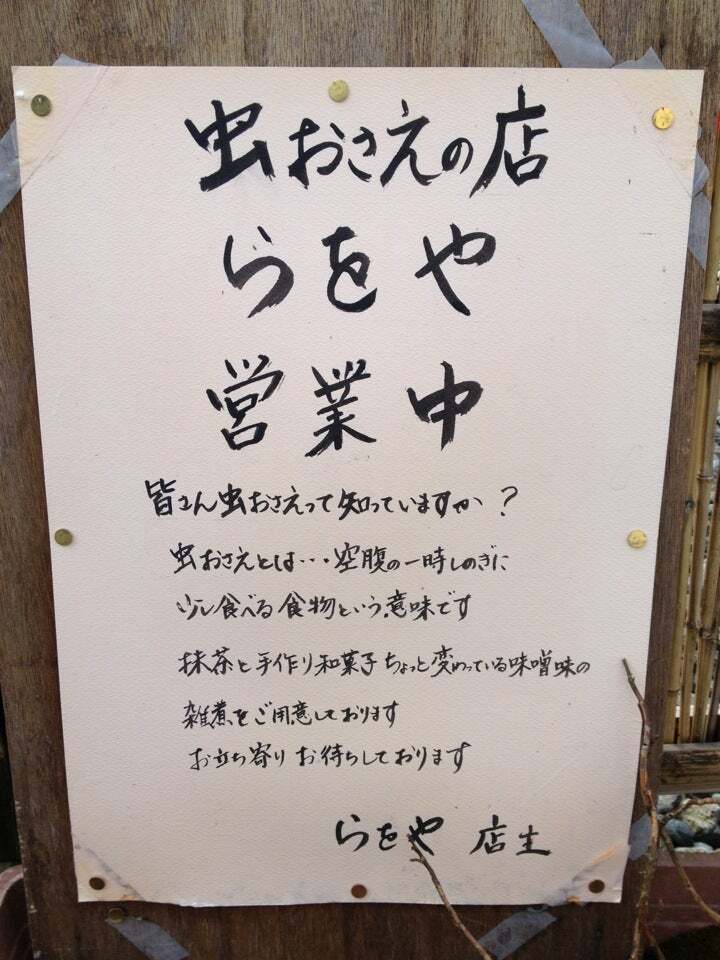 虫おさえの店
らをや
営業中
皆さん虫おさえって知っていますか？
虫おさえとは・・・空腹の一時しのぎに
少し食べる食物という意味です
抹茶と手作り和菓子ちょっと変わっている味噌味の
雑煮をご用意しております
お立ち寄りお待ちしております
らをや 店主